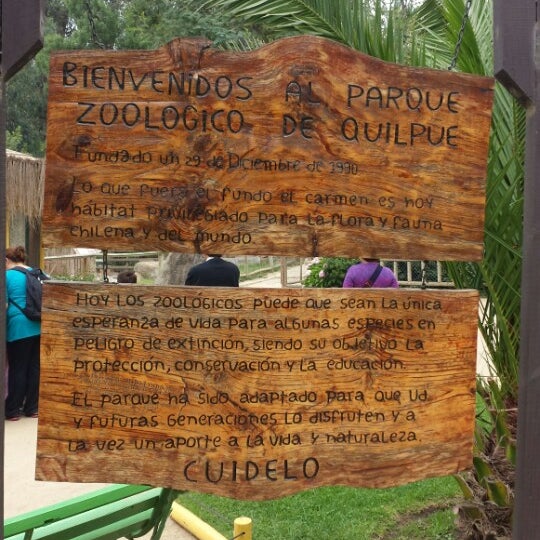 BIENVENIDOS AL PARQUE
ZOOLOGICO DE QUILPUE
Fundado un 29 de Diciembre de 1990
Lo que fuera el fundo el carmen es hoy
hábitat privilegiado para la flora y fauna
chilena y del mundo.
Hoy los zoológicos puede que sean la única
esperanza de vida para algunas especies en
peligro de extinción, siendo su objetivo la
protección, conservación y la educación.
El parque ha sido adaptado para que ud.
y futuras generaciones lo disfruten y a
la vez un aporte a la vida y naturaleza.
CUIDELO